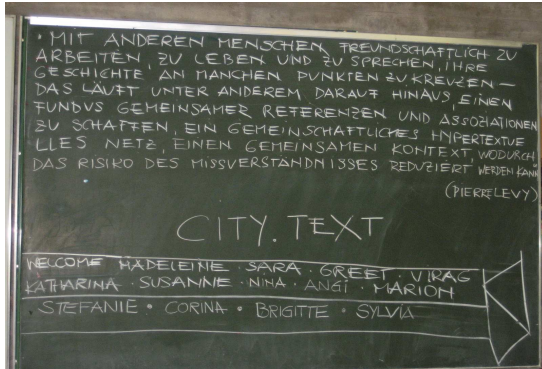 · MIT ANDEREN MENSCHEN FREUNDSCHAFTLICH ZU
ARBEITEN, ZU LEBEN UND ZU SPRECHEN, IHRE
GESCHICHTE AN MANCHEN PUNKTEN ZU KREUZEN —
DAS LÄUFT UNTER ANDEREM DARAUF HINAUS, EINEN
FUNDUS GEMEINSAMER REFERENZEN UND ASSOZIATIONEN
ZU SCHAFFEN, EIN GEMEINSCHAFTLICHES HYPERTEXTUE
LLES NETZ, EINEN GEMEINSAMEN KONTEXT, WODURCH
DAS RISIKO DES MISSVERSTÄNDNISSES REDUZIERT WERDEN KANN
(PIERRE LEVY)
CITY.TEXT
WELCOME MADELEINE · SARA · GREET · VIRAG
KATHARINA · SUSANNE · NINA · ANGI · MARION
STEFANIE · CORINA · BRIGITTE · SYLVIA